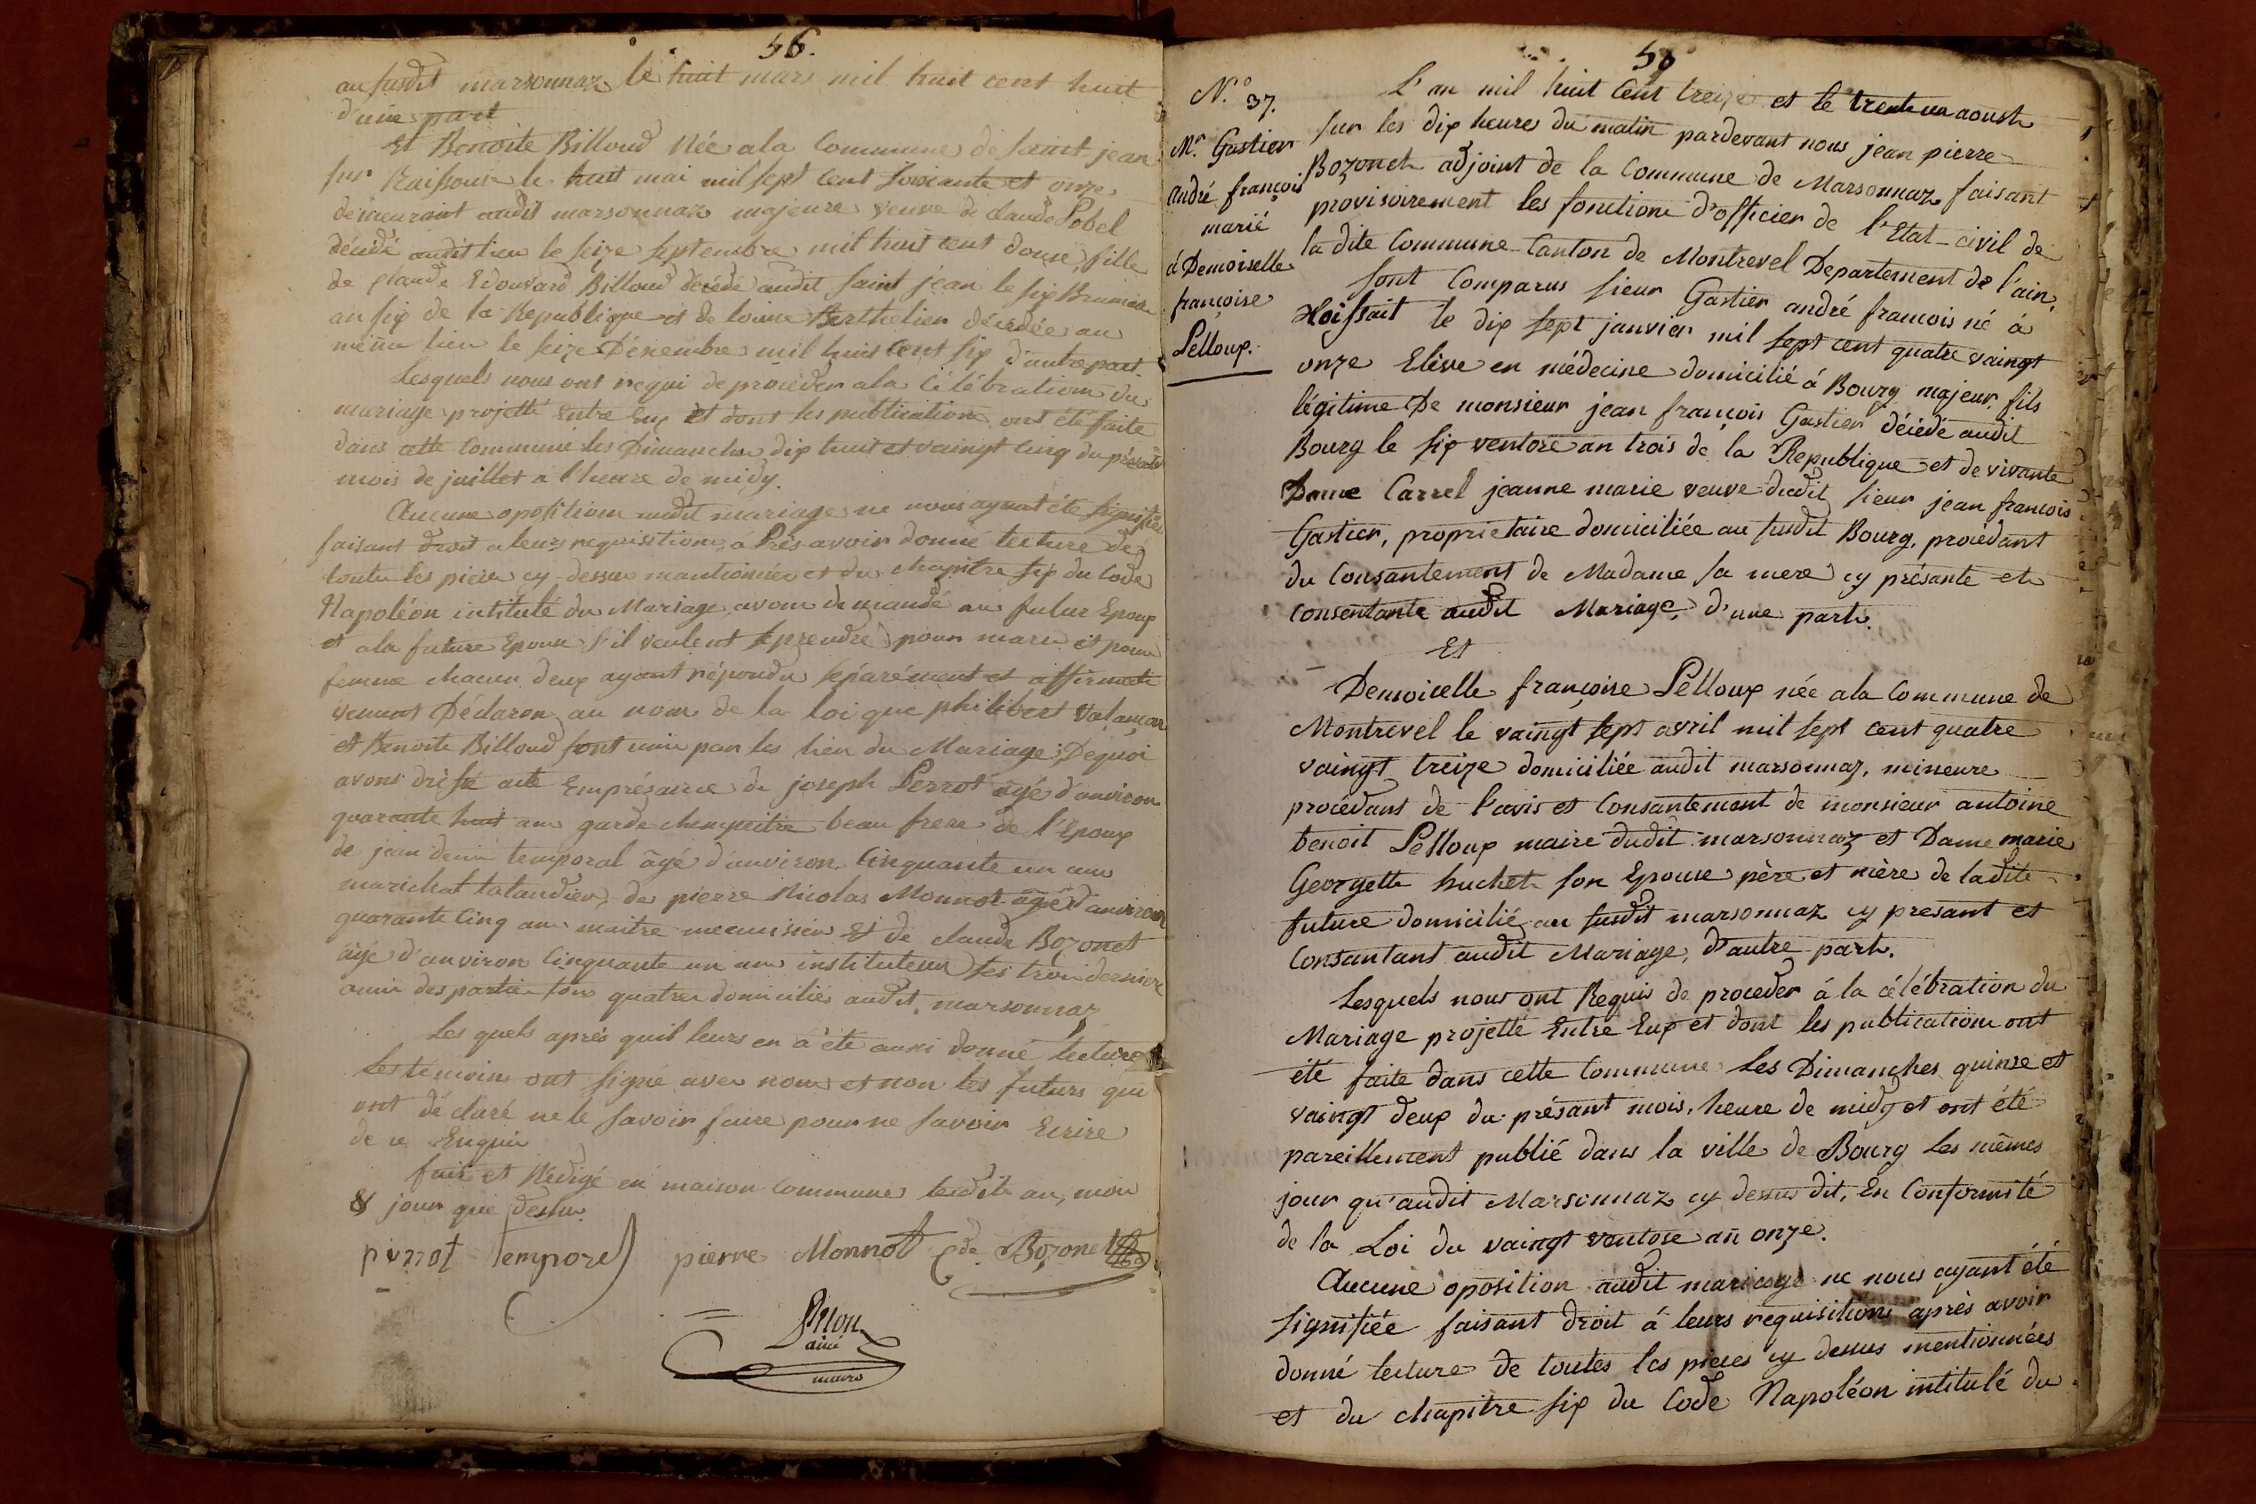 56.
au susdit marsonnaz le huit mars mil huit cent huit
d'une part
Et Benoite Billoud Née a la Commune de saint jean
sur Raissouse le huit mai mil sept cent soixante et onze
demeurant audit marsonnaz majeure veuve de claude Pobel
décédé audit lieu le seize septembre mil huit cent douze, fille
de Claude Edouard Billoud décédé audit saint jean le six Brumaire
an six de la Republique et de louise Berthelier décédée au
même lieu le seize Décembre mil huit Cent six d'autre part.
Lesquels nous ont requi de proceder a la Célébration du
mariage projetté entre Eux et dont les publications ont été faite
dans cette Commune les Dimanches dix huit et vaingt Cinq du présent
mois de juillet a l'heure de midy.
Aucune oposition audit mariage ne nous ayant été signifiée
faisant droit a leurs requisitions, a Près avoir donné lecture de
toutes les pieces cy dessus mantionnées et du chapitre six du Code
Napoléon intitulé du Mariage, avons demandé au futur Epoux
et a la future Epouse s'il veulent se prendre pour mari et pour
femme chacun deux ayant répondu séparément et affirmati-
vement Déclaron au nom de la loi que philibert Valançon
et Benoite Billoud sont unis par les lien du Mariage; De quoi
avons dressé acte En présance de joseph Perrot âgé d'anviron
quarante huit ans garde champaitre beau frere de l'Epoux
de jean denis temporal âgé d'anviron Cinquante un ans
marichal talandier, de pierre Nicolas Monnot âgé d'anviron
quarante Cinq ans maitre menuisier Et de claude Bozonet
âgé d'anviron Cinquante un ans instituteur les trois derniers
amis des parties tous quatre domiciliés audit marsonnaz
Les quels après quil leurs en a été aussi donné lecture
les témoins ont signé avec nous et non les futurs qui
ont déclaré ne le savoir faire pour ne savoir Ecrire
de ce Enquis
fait et Rédigé en maison Commune lesdits an, mois
& jour que dessus.
perrot Temporel pierre Monnot Cde Bozonet
Piton
ainé
maire
57
N.º 37.
Mr. Gastier
André françois
marié
á Demoiselle
françoise
Pelloux.
L'an mil huit Cent treize et le trente un aoust
sur les dix heures du matin pardevant nous jean pierre
Bozonet adjoint de la Commune de Marsonnaz faisant
provisoirement les fonctions d'officier de l'Etat-civil de
la dite Commune Canton de Montrevel Departement de l'ain,
sont Comparus sieur Gastier andré francois né á
Hoissait le dix sept janvier mil sept cent quatre vaingt
onze Elève en médecine domicilié á Bourg majeur, fils
légitime De monsieur jean françois Gastier décédé audit
Bourg le six ventose an trois de la Republique et de vivante
Dame Carrel jeanne marie veuve dudit sieur jean francois
Gastier, proprietaire domiciliée au susdit Bourg, procédant
du Consantement de Madame sa mere cy présante et
consentante audit Mariage, d'une part.
Et
Demoicelle françoise Pelloux née a la Commune de
Montrevel le vaingt sept avril mil sept cent quatre
vaingt treize domiciliée audit marsonnaz, mineure
procédant de l'avis et Consantement de monsieur antoine
benoit Pelloux maire dudit marsonnaz et Dame marie
Georgette huchet son Epouse père et mère de la dite
future domicilié au susdit marsonnaz cy presant et
Consantant audit Mariage, d'autre part.
Lesquels nous ont Requis de proceder á la célébration du
Mariage projetté Entre Eux et dont les publications ont
été faite dans cette Commune Les Dimanches quinze et
vaingt deux du présant mois, heure de midy et ont été
pareillement publié dans la ville de Bourg Les mêmes
jour qu'audit Marsonnaz cy dessus dit, En Conformité
de la Loi du vaingt ventose an onze.
Aucune oposition audit mariage ne nous ayant été
signifiée faisant droit á leurs requisitions après avoir
donné lecture de toutes les pieces cy dessus mentionnées
et du chapitre six du Code Napoléon intitulé du